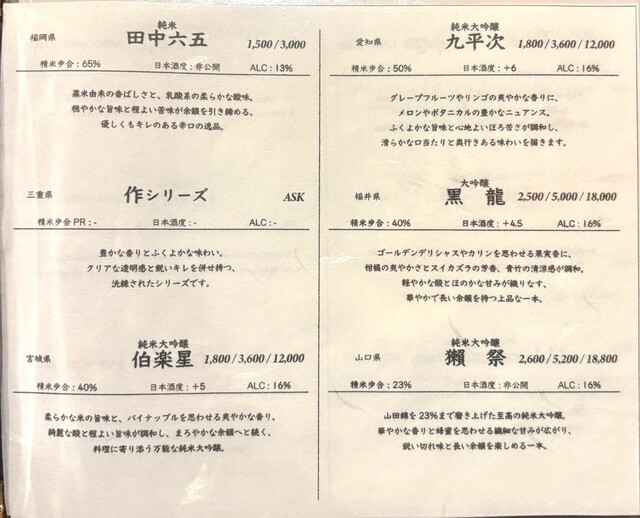 純米
福岡県 田中六五 1,500 / 3,000
精米歩合：65% 日本酒度：非公開 ALC：13%
蒸米由来の香ばしさと、乳酸系の柔らかな酸味。
穏やかな旨味と程よい苦味が余韻を引き締める、
優しくもキレのある辛口の逸品。
三重県 作シリーズ ASK
精米歩合 PR：- 日本酒度：- ALC：-
豊かな香りとふくよかな味わい。
クリアな透明感と鋭いキレを併せ持つ、
洗練されたシリーズです。
純米大吟醸
宮城県 伯楽星 1,800 / 3,600 / 12,000
精米歩合：40% 日本酒度：+5 ALC：16%
柔らかな米の旨味と、パイナップルを思わせる爽やかな香り。
綺麗な酸と程よい旨味が調和し、まろやかな余韻へと続く、
料理に寄り添う万能な純米大吟醸。
純米大吟醸
愛知県 九平次 1,800 / 3,600 / 12,000
精米歩合：50% 日本酒度：+6 ALC：16%
グレープフルーツやリンゴの爽やかな香りに、
メロンやボタニカルの豊かなニュアンス。
ふくよかな旨味と心地よいほろ苦さが調和し、
滑らかな口当たりと奥行きある味わいを描きます。
大吟醸
福井県 黒龍 2,500 / 5,000 / 18,000
精米歩合：40% 日本酒度：+4.5 ALC：16%
ゴールデンデリシャスやカリンを思わせる果実香に、
柑橘の爽やかさとスイカズラの芳香、青竹の清涼感が調和。
軽やかな酸とほのかな甘みが織りなす、
華やかで長い余韻を持つ上品な一本。
純米大吟醸
山口県 獺祭 2,600 / 5,200 / 18,800
精米歩合：23% 日本酒度：非公開 ALC：16%
山田錦を23%まで磨き上げた至高の純米大吟醸。
華やかな香りと蜂蜜を思わせる繊細な甘みが広がり、
鋭い切れ味と長い余韻を楽しめる一本。